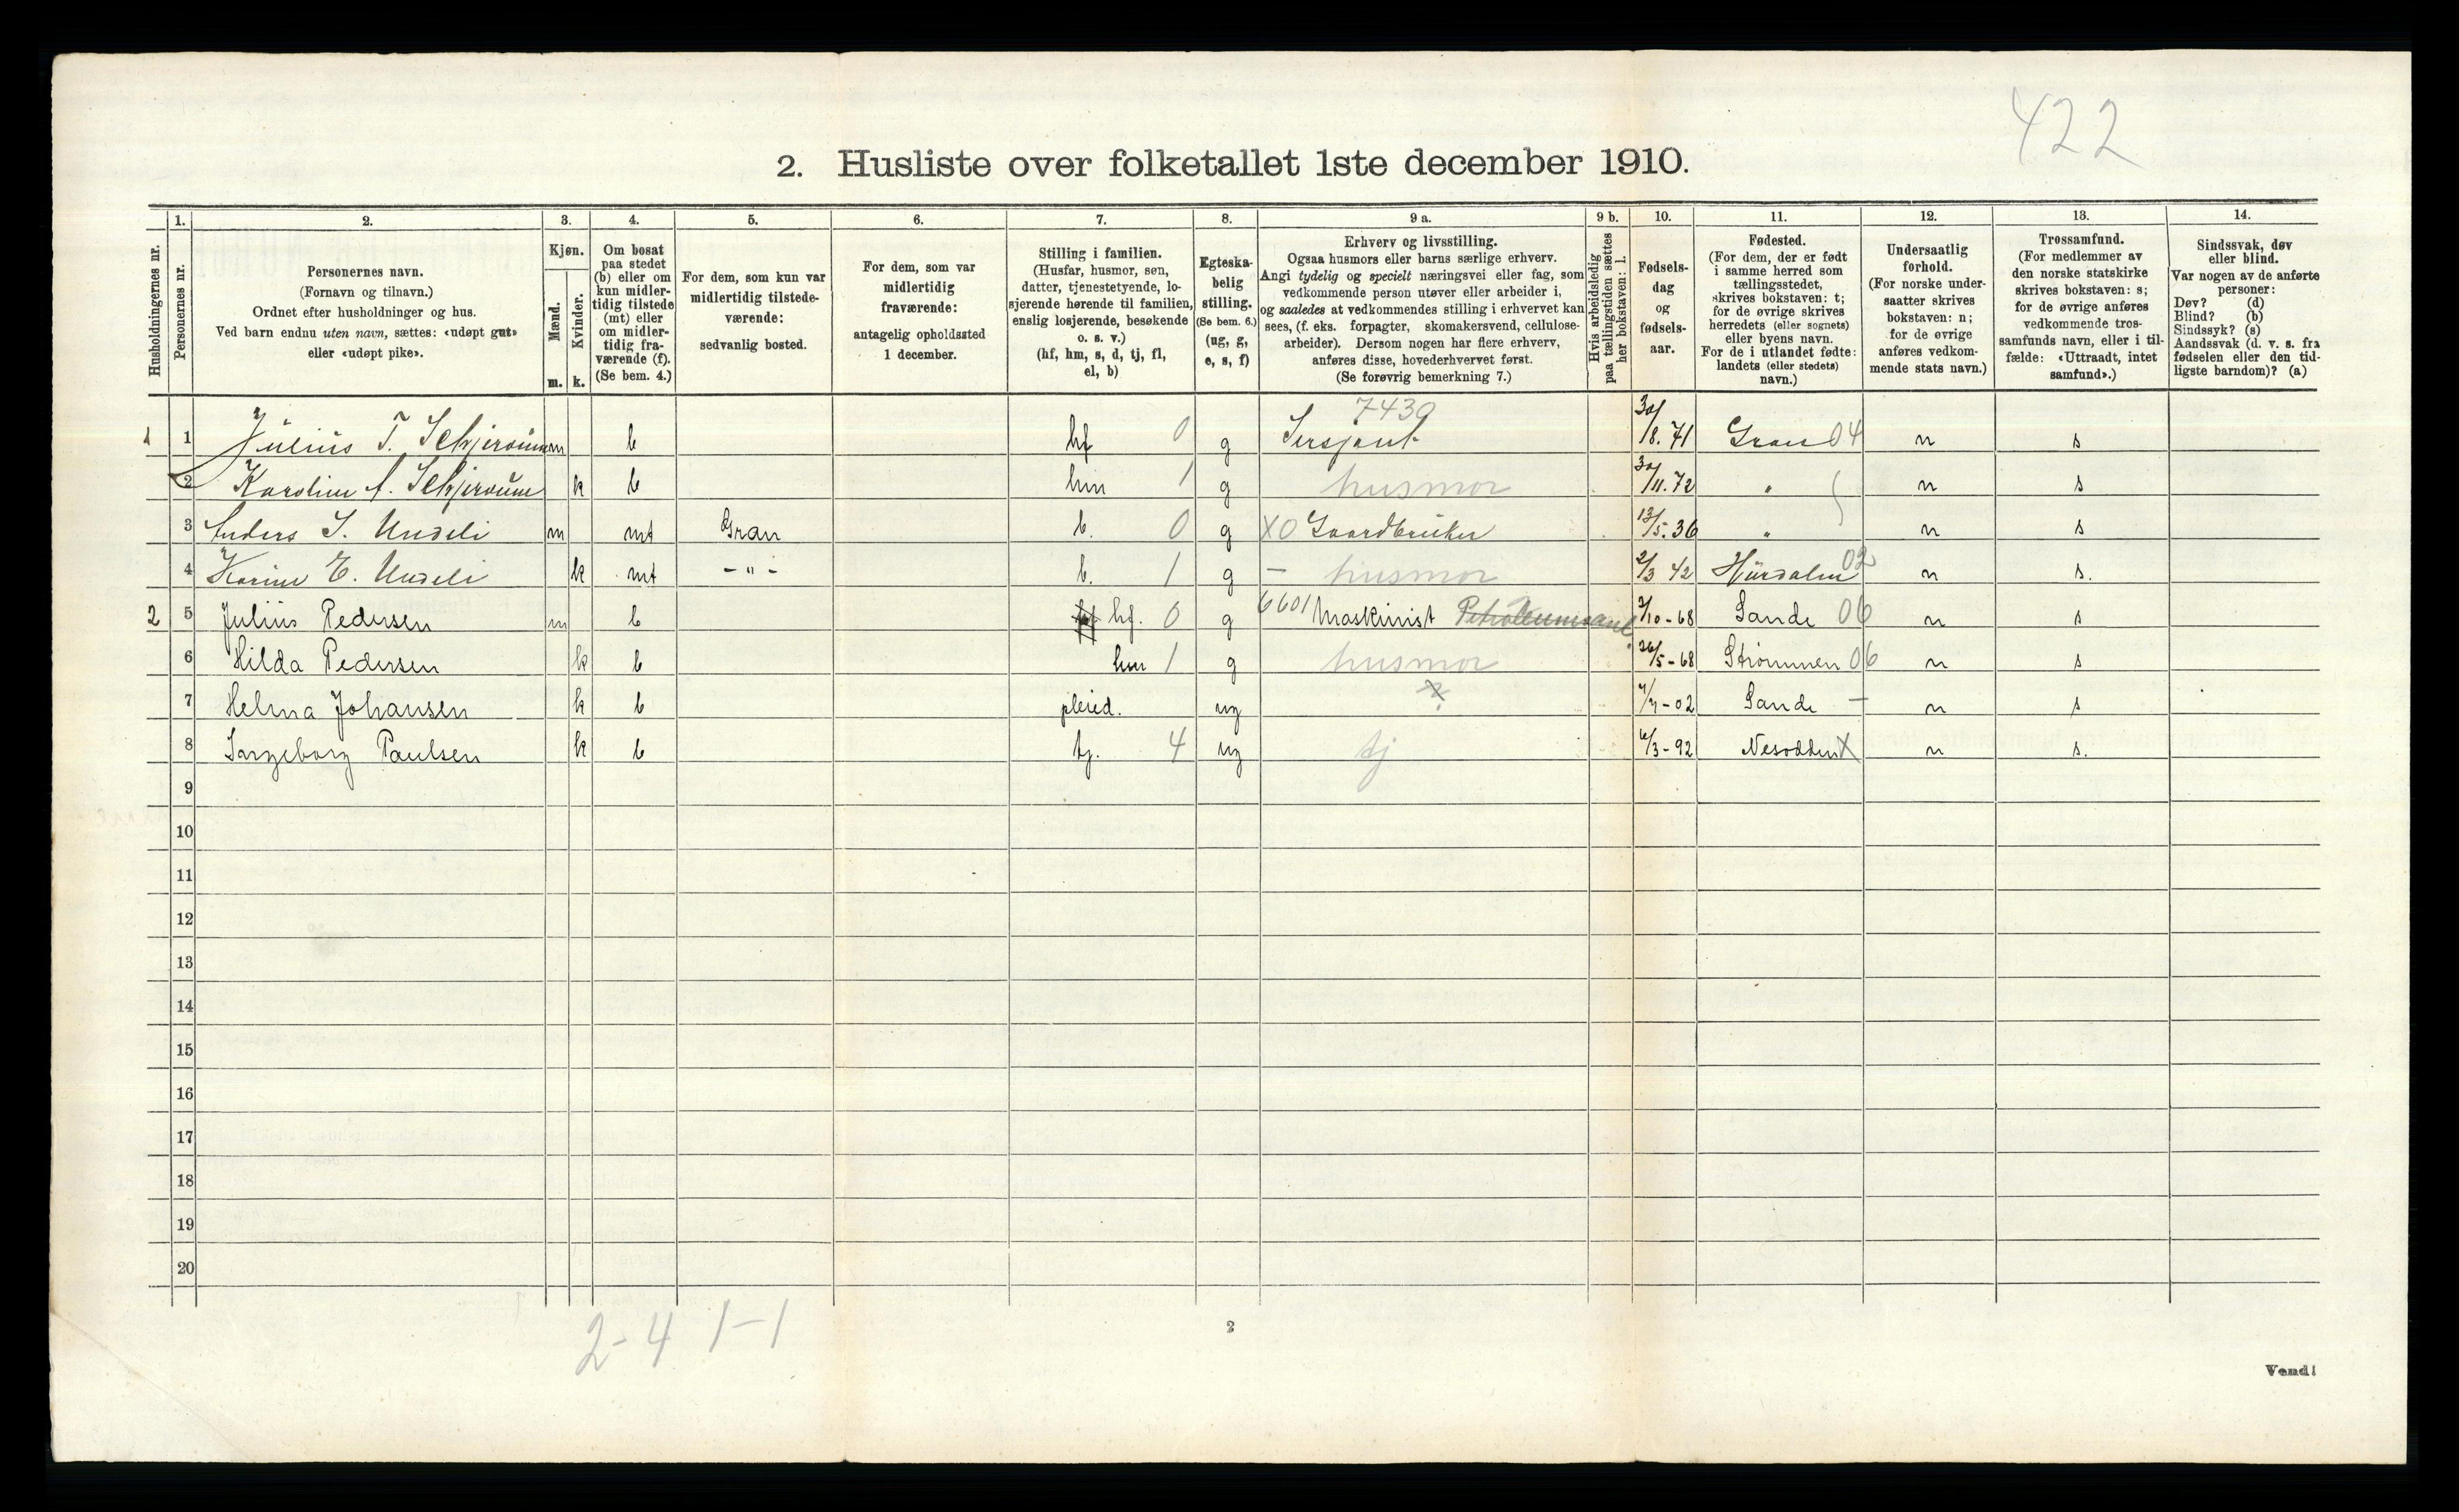 422
2. Husliste over folketallet 1ste december 1910.
Husholdningernes nr.
1. Personernes nr.
2. Personernes navn. (Fornavn og tilnavn.) Ordnet efter husholdninger og hus. Ved barn endnu uten navn, sættes: «udøpt gut» eller «udøpt pike».
3. Kjøn. Mænd. m. Kvinder. k.
4. Om bosat paa stedet (b) eller om kun midler-tidig tilstede (mt) eller om midler-tidig fra-værende (f). (Se bem. 4.)
5. For dem, som kun var midlertidig tilstede-værende: sedvanlig bosted.
6. For dem, som var midlertidig fraværende: antagelig opholdssted 1 december.
7. Stilling i familien. (Husfar, husmor, søn, datter, tjenestetyende, lo-sjerende hørende til familien, enslig losjerende, besøkende o. s. v.) (hf, hm, s, d, tj, fl, el, b)
8. Egteska-belig stilling. (Se bem. 6.) (ug, g, e, s, f)
9 a. Erhverv og livsstilling. Ogsaa husmors eller barns særlige erhverv. Angi tydelig og specielt næringsvei eller fag, som vedkommende person utøver eller arbeider i, og saaledes at vedkommendes stilling i erhvervet kan sees, (f. eks. forpagter, skomakersvend, cellulose-arbeider). Dersom nogen har flere erhverv, anføres disse, hovederhvervet først. (Se forøvrig bemerkning 7.)
9 b. Hvis arbeidsledig paa tællingstiden sættes her bokstaven: l.
10. Fødsels-dag og fødsels-aar.
11. Fødested. (For dem, der er født i samme herred som tællingsstedet, skrives bokstaven: t; for de øvrige skrives herredets (eller sognets) eller byens navn. For de i utlandet fødte: landets (eller stedets) navn.)
12. Undersaatlig forhold. (For norske under-saatter skrives bokstaven: n; for de øvrige anføres vedkom-mende stats navn.)
13. Trossamfund. (For medlemmer av den norske statskirke skrives bokstaven: s; for de øvrige anføres vedkommende tros-samfunds navn, eller i til-fælde: «Uttraadt, intet samfund».)
14. Sindssvak, døv eller blind. Var nogen av de anførte personer: Døv? (d) Blind? (b) Sindssyk? (s) Aandssvak (d. v. s. fra fødselen eller den tid-ligste barndom)? (a)
1 1 Julius T. Schjeroum m b hf 0 g 7439 Sersjant 30/8. 71 Gran 04 n s
2 Karoline A. Schjeroum k b hm 1 g husmor 30/11. 72 " n s
3 Anders I. Undeli m mt Gran b. 0 g X0 Gaardbruker 13/5. 36 " n s
4 Karine E. Undeli k mt - " - b. 1 g - husmor 2/3 42 Hurdalen 02 n s.
2 5 Julius Pedersen m b hf. 0 g 6601 Maskinist /10-68 Sande 06 n s
6 Hilda Pedersen k b hm 1 g husmor 26/5-68 Strømmen 06 n s
7 Helma Johansen k b pleied. ug 7/7-02 Sande - n s
8 Ingeborg Paulsen k b tj. 4 ug tj 6/3-92 Nesodden X n s.
9
10
11
12
13
14
15
16
17
18
19
20
2-4 1-1
2
Vend!